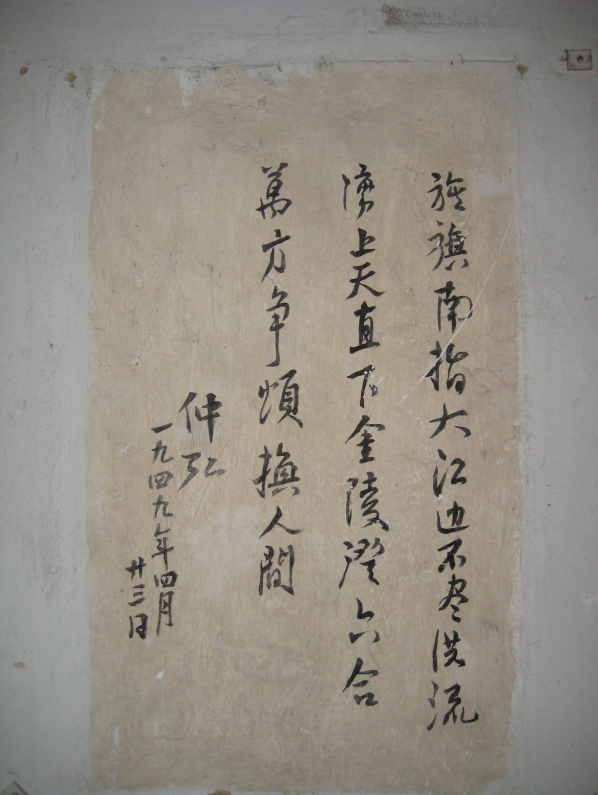 旌旗南指大江边不尽洪流
湧上天直下金陵澄六合
萬方争頌換人間
仲弘
一九四九年四月
廿三日